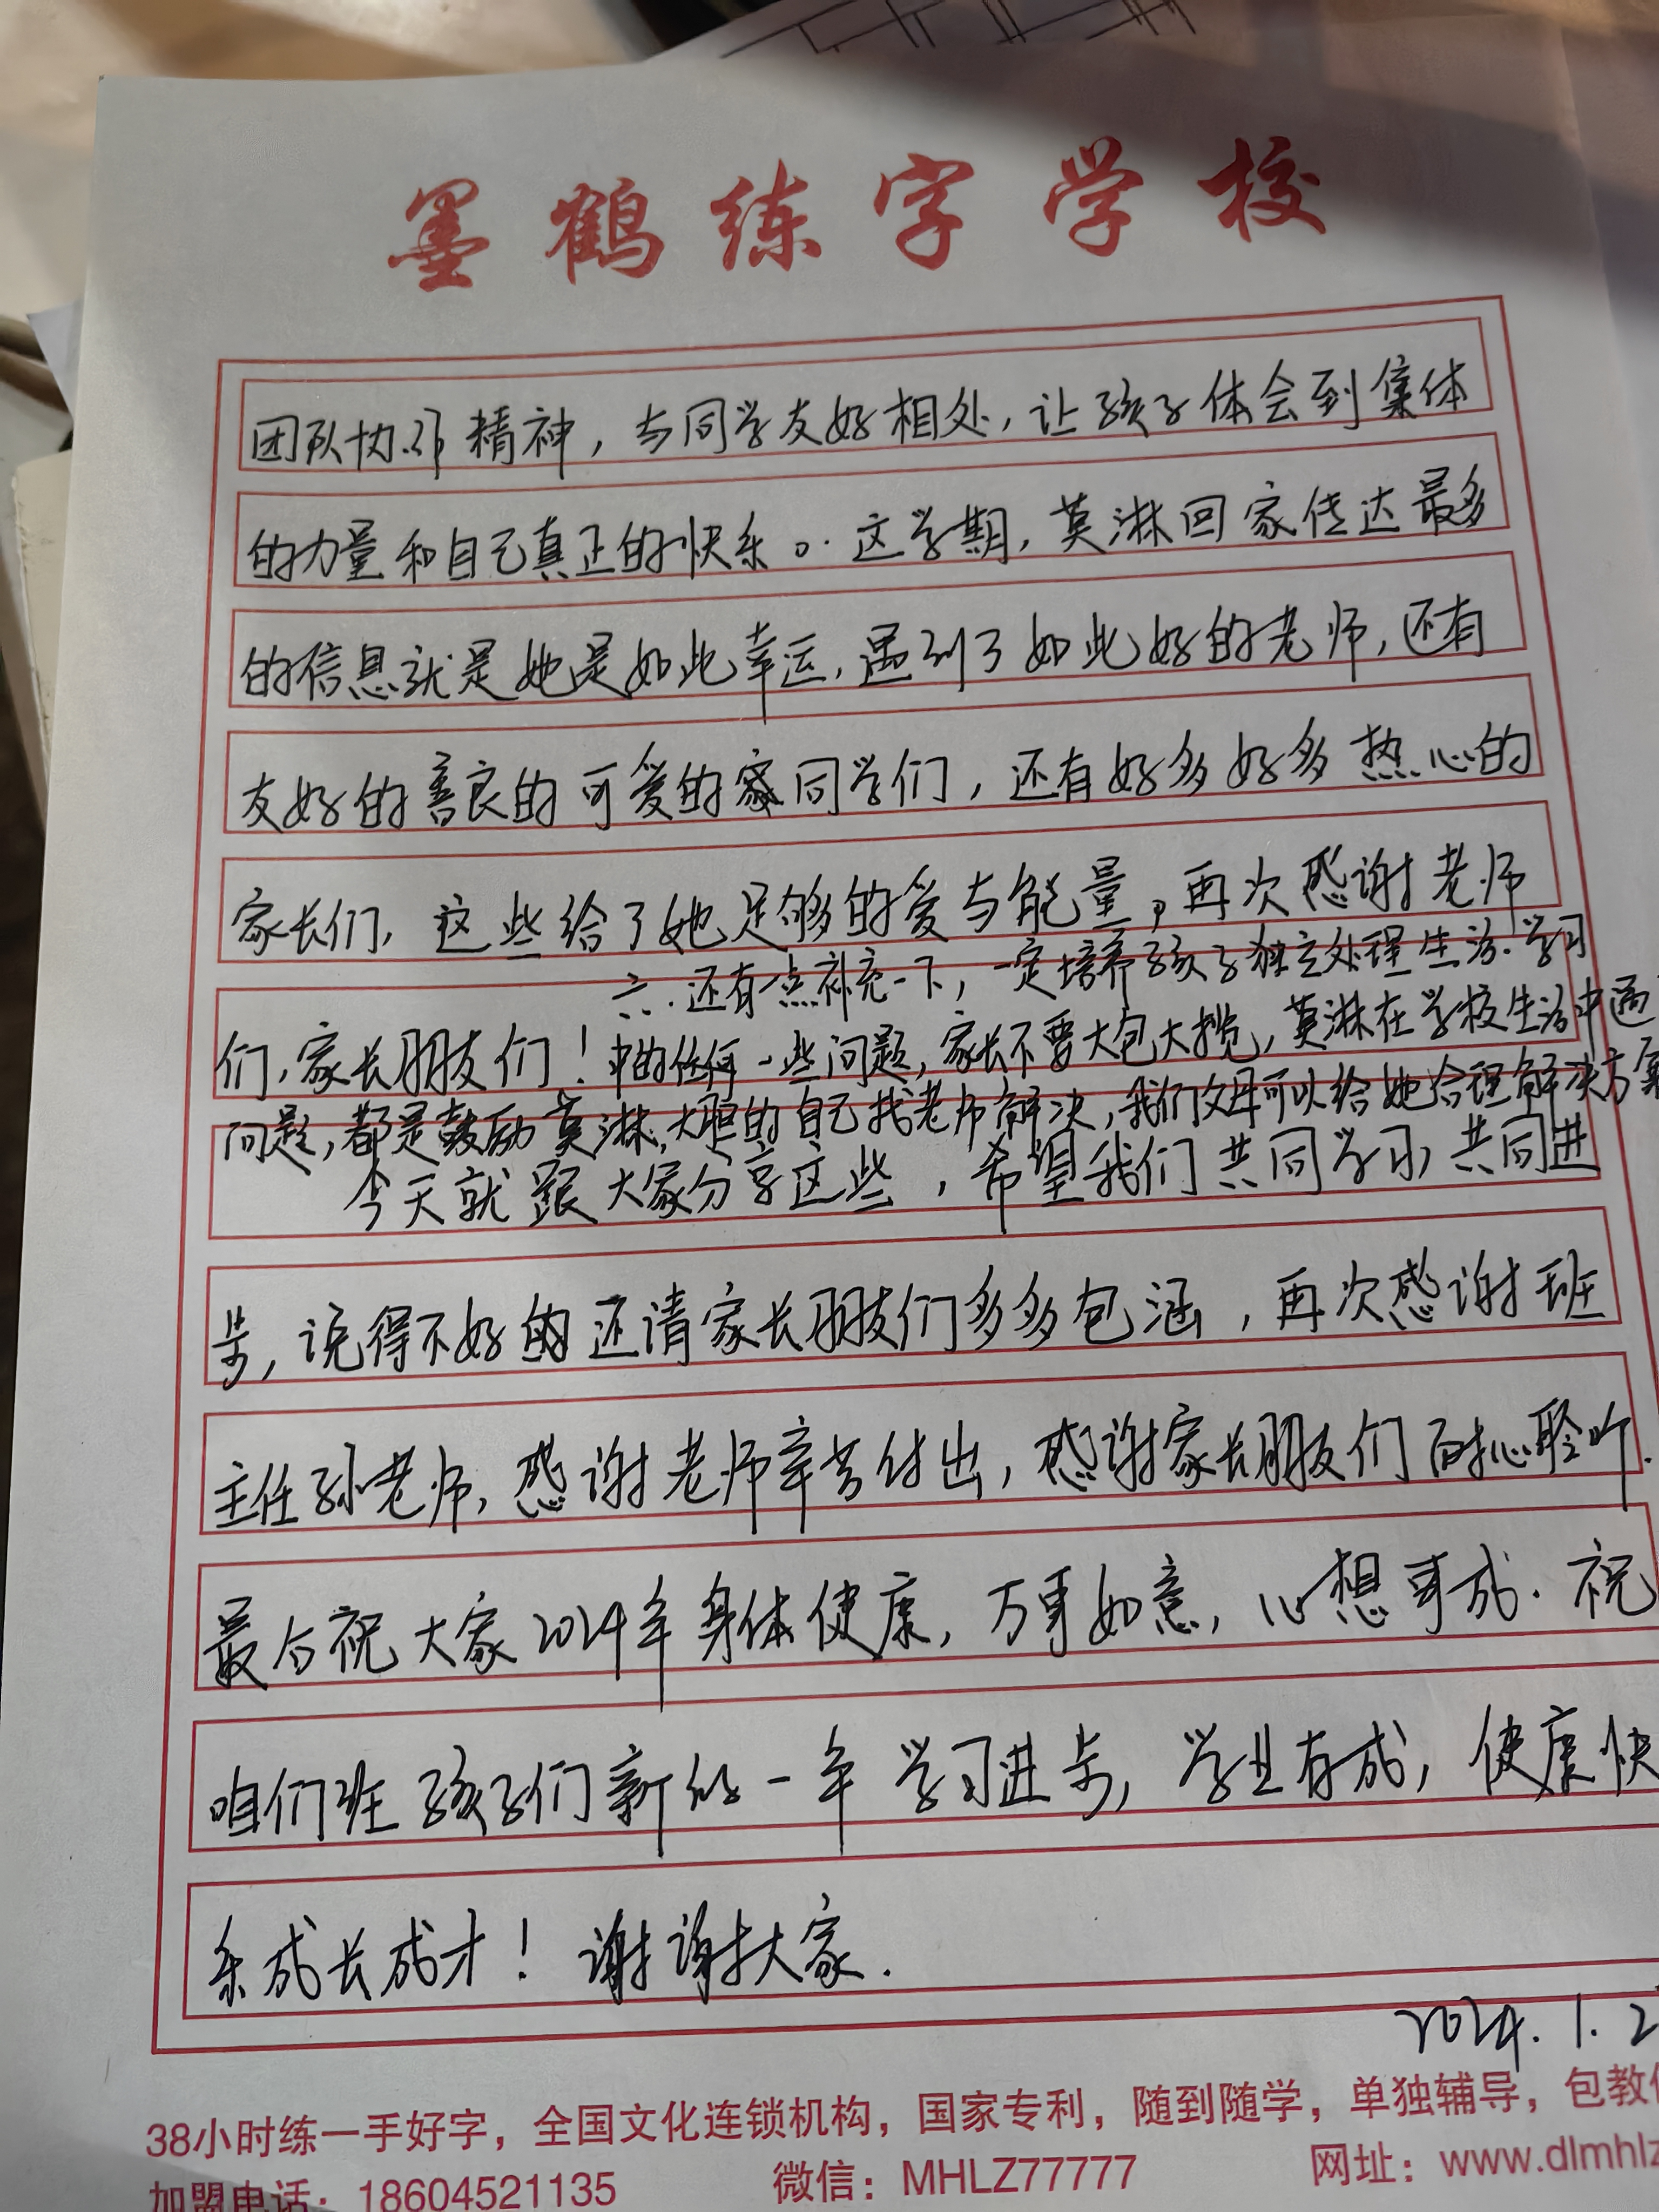 墨鹤练字学校
团队协作精神，与同学友好相处，让孩子体会到集体
的力量和自己真正的快乐。这学期，莫淋回家传达最多
的信息就是她是如此幸运，遇到了如此好的老师，还有
友好的善良的可爱的同学们，还有好多好多热心的
家长们，这些给了她足够的爱与能量，再次感谢老师
们，家长朋友们！
六.还有一点补充一下，一定培养孩子独立处理生活.学习
中的任何一些问题，家长不要大包大揽，莫淋在学校生活中遇
问题，都是鼓励莫淋，大胆的自己找老师解决，我们父母可以给她合理解决方案
今天就跟大家分享这些，希望我们共同学习，共同进
步，说得不好的还请家长朋友们多多包涵，再次感谢班
主任孙老师，感谢老师辛苦付出，感谢家长朋友们耐心聆听.
最后祝大家2024年身体健康，万事如意，心想事成.祝
咱们班孩子们新的一年学习进步，学业有成，健康快
乐成长成才！谢谢大家.
2024.1.2
38小时练一手好字，全国文化连锁机构，国家专利，随到随学，单独辅导，包教
加盟电话：18604521135 微信：MHLZ77777 网址：www.dlmhlz